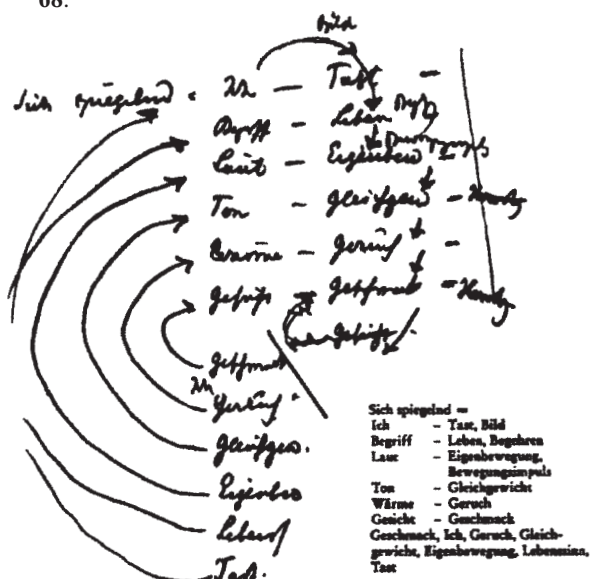 68.
Bild
Sich spiegelnd = Ich — Tast —
Begriff — Leben
Laut — Eigenbew —
Ton — Gleichgew —
Wärme — Geruch —
Gesicht — Geschmack —
oder Gesicht
Geschmack
Ich
Geruch
Gleichgew.
Eigenbew
Lebens
Tast.
Sich spiegelnd =
Ich – Tast, Bild
Begriff – Leben, Begehren
Laut – Eigenbewegung,
Bewegungsimpuls
Ton – Gleichgewicht
Wärme – Geruch
Gesicht – Geschmack
Geschmack, Ich, Geruch, Gleich-
gewicht, Eigenbewegung, Lebenssinn,
Tast